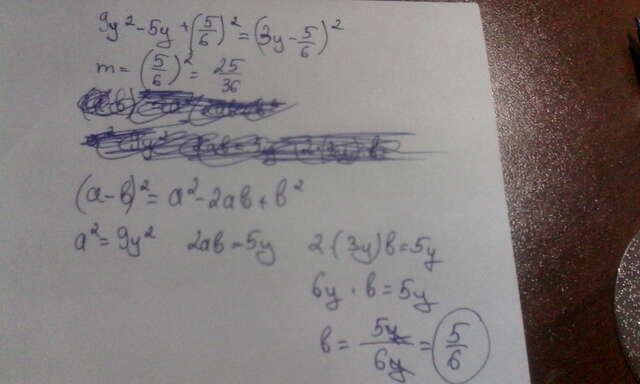 9y² - 5y + (5/6)² = (3y - 5/6)²
m = (5/6)² = 25/36
(a-b)² = a² - 2ab + b²
a² = 9y² 2ab = 5y 2·(3y)b = 5y
6y · b = 5y
b = 5y/6y = 5/6